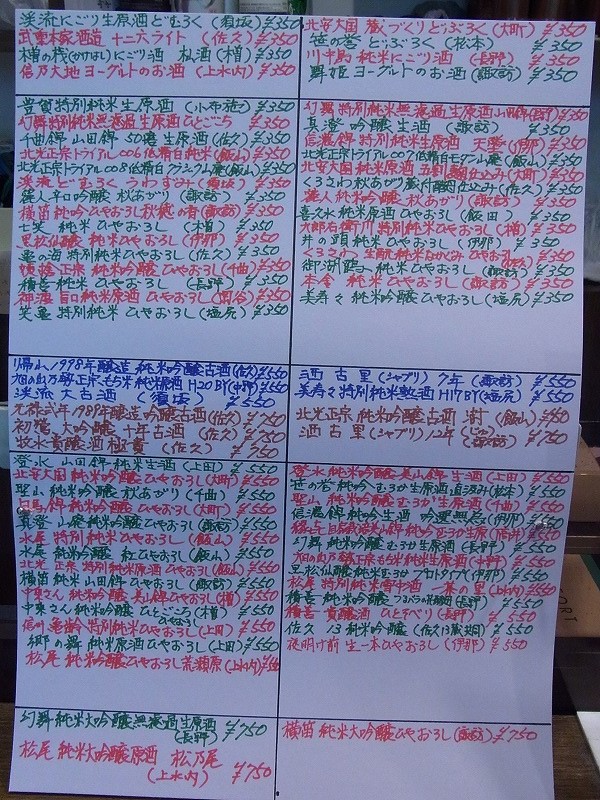 渓流にごり生原酒どむろく (須坂) ¥350
武重本家酒造 十二六ライト (佐久) ¥350
木曽の桟(かけはし)にごり酒 杣酒 (木曽) ¥350
信乃大地ヨーグルトのお酒 (上水内) ¥350
北安大国 蔵づくりどぶろく (大町) ¥350
笹の誉 どぶろく (松本) ¥350
川中島 純米にごり酒 (長野) ¥350
舞姫ヨーグルトのお酒 (諏訪) ¥350
豊賀特別純米生原酒 (小布施) ¥350
幻舞特別純米無濾過生原酒ひとごこち ¥350
千曲錦 山田錦 50選 生原酒 (佐久) ¥350
北光正宗トライアル006低精白純米 (飯山) ¥350
北光正宗トライアル008低精白クラシック山廃 (飯山) ¥350
渓流どむろくうわずみ (須坂) ¥350
麗人 辛口吟醸 秋あがり (諏訪) ¥350
横笛 純吟ひやおろし秋穂の香 (諏訪) ¥350
七笑 純米ひやおろし (木曽) ¥350
黒松仙醸 純米ひやおろし (伊那) ¥350
亀の海 特別純米ひやおろし (佐久) ¥350
姨捨正宗 純米吟醸ひやおろし (千曲) ¥350
積善 純米ひやおろし (長野) ¥350
神渡 旨口純米原酒ひやおろし (岡谷) ¥350
笑亀 特別純米 ひやおろし (塩尻) ¥350
幻舞 特別純米無濾過生原酒山田錦 (長野) ¥350
真澄 吟醸生酒 (諏訪) ¥350
信濃錦 特別純米生原酒 天霊 (伊那) ¥350
北光正宗トライアル007低精白モダン山廃 (飯山) ¥350
北安大国 純米原酒 五割麹仕込み (大町) ¥350
くろさわ 秋あがり 蔵付酵母仕込み (佐久) ¥350
麗人 純米吟醸 秋あがり (諏訪) ¥350
喜久水 純米原酒ひやおろし (飯田) ¥350
十六代九郎右衛門 特別純米ひやおろし (木曽) ¥350
井の頭 純米 ひやおろし (伊那) ¥350
くろさわ 生酛純米なかくみひやおろし (佐久) ¥350
御湖鶴 純米ひやおろし (諏訪) ¥350
本金 純米ひやおろし (諏訪) ¥350
美寿々 純米吟醸 ひやおろし (塩尻) ¥350
帰山 1998年醸造 純米吟醸古酒 (佐久) ¥550
渓流 大古酒 (須坂) ¥550
酒古里(シャブリ) 7年 (諏訪) ¥550
美寿々 特別純米熟酒 H17BY (塩尻) ¥550
元禄弐年 1989年醸造吟醸古酒 (佐久) ¥750
初鶯 大吟醸 十年古酒 (佐久) ¥750
牧水貴醸酒 極貴 (佐久) ¥750
北光正宗 純米吟醸古酒 (飯山) ¥550
酒古里(シャブリ) 12年 (諏訪) ¥750
登水 山田錦 純米生酒 (上田) ¥550
北安大国 純米吟醸 ひやおろし (大町) ¥550
聖山 純米吟醸 秋あがり (千曲) ¥550
白馬錦 純米吟醸ひやおろし (大町) ¥550
真澄 山廃純米吟醸ひやおろし (諏訪) ¥550
水尾 特別純米 ひやおろし (飯山) ¥550
水尾 純米吟醸 紅ひやおろし (飯山) ¥550
北光正宗 特別純米原酒ひやおろし (飯山) ¥550
横笛 純米 山田錦 ひやおろし (諏訪) ¥550
中乗さん 純米吟醸 美山錦ひやおろし (木曽) ¥550
中乗さん 純米吟醸 ひとごこちひやおろし (木曽) ¥550
信州亀齢 特別純米ひやおろし (上田) ¥550
郷の舞 純米原酒ひやおろし (上田) ¥550
松尾 純米吟醸ひやおろし荒瀬原 (上水内) ¥550
登水 純米吟醸 美山錦 生酒 (上田) ¥550
笹の誉 純吟むろか生原酒直汲み (松本) ¥550
聖山 純米吟醸むろか生原酒 (千曲) ¥550
信濃錦 純米生原酒 (伊那) ¥550
幻舞 純米吟醸むろか生原酒 (長野) ¥550
黒松仙醸純米むろかプロトタイプ (伊那) ¥550
松尾 特別純米生酒 (上水内) ¥550
積善 純米吟醸 (長野) ¥550
積善 貴醸酒 ひとうべり (長野) ¥550
佐久 13 純米吟醸 (佐久13蔵共同) ¥550
夜明け前 生一本ひやおろし (伊那) ¥550
幻舞 純米大吟醸無濾過生原酒 (長野) ¥750
松尾 純米大吟醸原酒 松乃尾 (上水内) ¥750
横笛 純米大吟醸ひやおろし (諏訪) ¥750